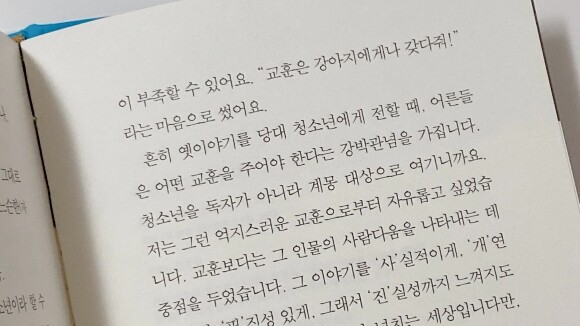 이 부족할 수 있어요. “교훈은 강아지에게나 갖다줘!”
라는 마음으로 썼어요.
흔히 옛이야기를 당대 청소년에게 전할 때, 어른들
은 어떤 교훈을 주어야 한다는 강박관념을 가집니다.
청소년을 독자가 아니라 계몽 대상으로 여기니까요.
저는 그런 억지스러운 교훈으로부터 자유롭고 싶었습
니다. 교훈보다는 그 인물의 사람다움을 나타내는 데
중점을 두었습니다. 그 이야기를 ‘사’실적이게, ‘개’연
성 있게, 그래서 ‘진’실성까지 느껴지도
넘치는 세상입니다만,